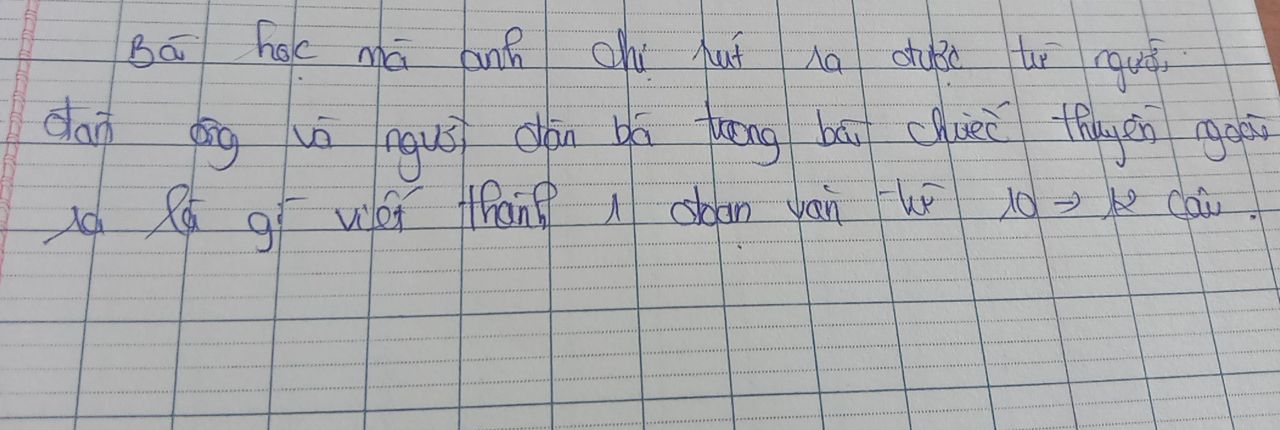 Bài học mà anh chị rút ra được từ người
đàn ông và người đàn bà trong bài chiếc thuyền ngoài
xa là gì viết thành 1 đoạn văn từ 10 → 12 câu.